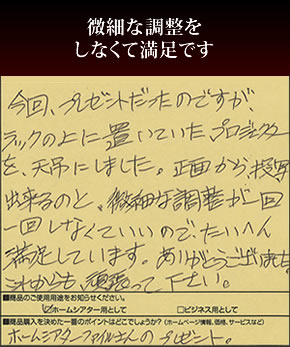 微細な調整を
しなくて満足です
今回、プレゼントだったのですが、
ラックの上に置いていた、プロジェクター
を、天吊にしました。正面から投写
出来るのと、微細な調整が一回
一回しなくていいので、たいへん
満足しています。ありがとうございました。
これからも、頑張って下さい。
■商品のご使用用途をお知らせください。
☑ホームシアター用として □ビジネス用として
■商品購入を決めた一番のポイントはどこでしょうか? (ホームページ情報、価格、サービスなど)
ホームシアターファイルさんのプレゼント。